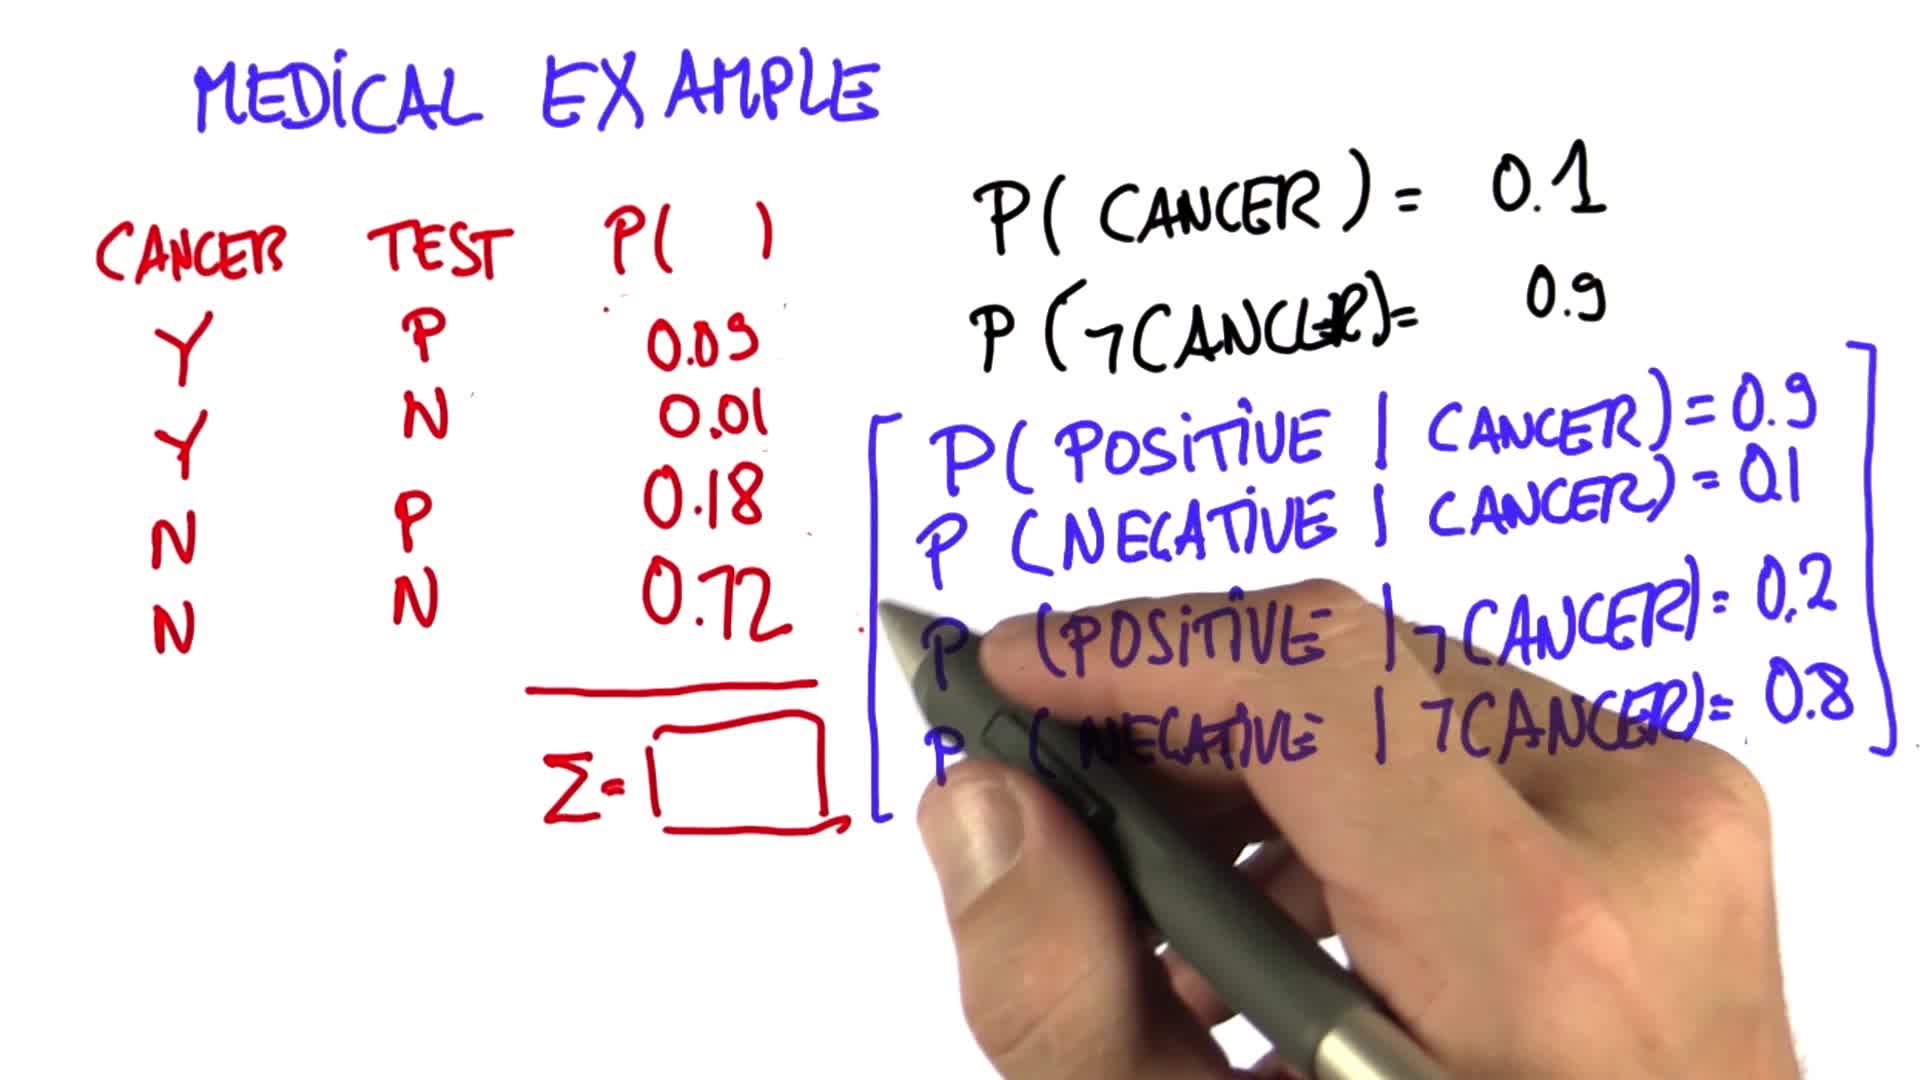 MEDICAL EXAMPLE
CANCER TEST P( )
Y P 0.09
Y N 0.01
N P 0.18
N N 0.72
Σ=
P( CANCER ) = 0.1
P (¬CANCER)= 0.9
P( POSITIVE | CANCER) = 0.9
P (NEGATIVE | CANCER) = 0.1
P (POSITIVE | ¬CANCER) = 0.2
P (NEGATIVE | ¬CANCER) = 0.8